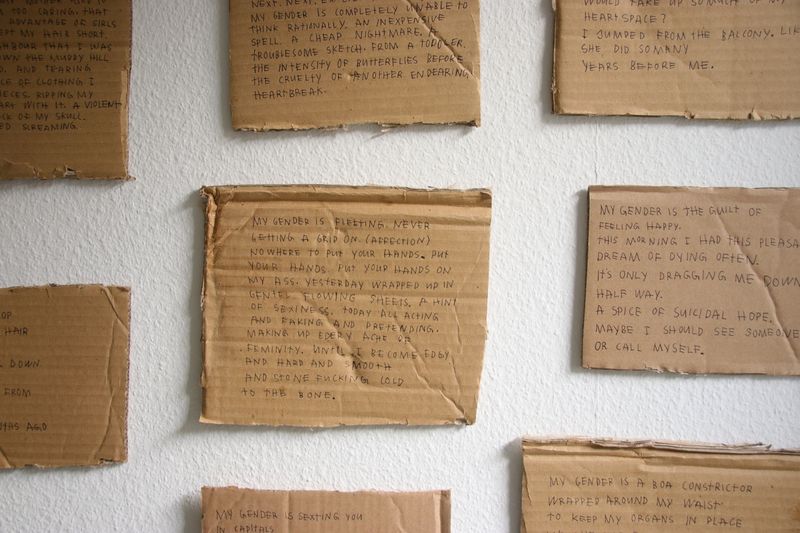 TOO CARING. THAT
ADVANTAGE OF GIRLS
EPT MY HAIR SHORT.
HBOUR THAT I WAS
OWN THE MUDDY HILL
D. AND TEARING
CE OF CLOTHING I
IECES. RIPPING MY
ART WITH IT. A VIOLENT
CK OF MY SKULL.
ED SCREAMING.
NEXT. NEXT.
MY GENDER IS COMPLETELY UNABLE TO
THINK RATIONALLY. AN INEXPENSIVE
SPELL. A CHEAP NIGHTMARE. A
TROUBLESOME SKETCH. FROM A TODDLER.
THE INTENSITY OF BUTTERFLIES BEFORE
THE CRUELTY OF ANOTHER ENDEARING
HEARTBREAK.
WOULD TAKE UP SO MUCH OF MY
HEARTSPACE?
I JUMPED FROM THE BALCONY. LIKE
SHE DID SO MANY
YEARS BEFORE ME.
MY GENDER IS FLEETING. NEVER
GETTING A GRIP ON. (AFFECTION)
NOWHERE TO PUT YOUR HANDS. PUT
YOUR HANDS. PUT YOUR HANDS ON
MY ASS. YESTERDAY WRAPPED UP IN
GENTEL FLOWING SHEETS. A HINT
OF SEXINESS. TODAY ALL ACTING
AND FAKING AND PRETENDING.
MAKING UP EVERY ACHE OF
FEMINITY. UNTIL I BECOME EDGY
AND HARD AND SMOOTH
AND STONE FUCKING COLD
TO THE BONE.
MY GENDER IS THE GUILT OF
FEELING HAPPY.
THIS MORNING I HAD THIS PLEASA
DREAM OF DYING OFTEN.
IT'S ONLY DRAGGING ME DOWN
HALF WAY.
A SPICE OF SUICIDAL HOPE.
MAYBE I SHOULD SEE SOMEONE
OR CALL MYSELF.
OP
HAIR
DOWN
FROM
AGO
MY GENDER IS SEXTING YOU
IN CAPITALS
MY GENDER IS A BOA CONSTRICTOR
WRAPPED AROUND MY WAIST
TO KEEP MY ORGANS IN PLACE